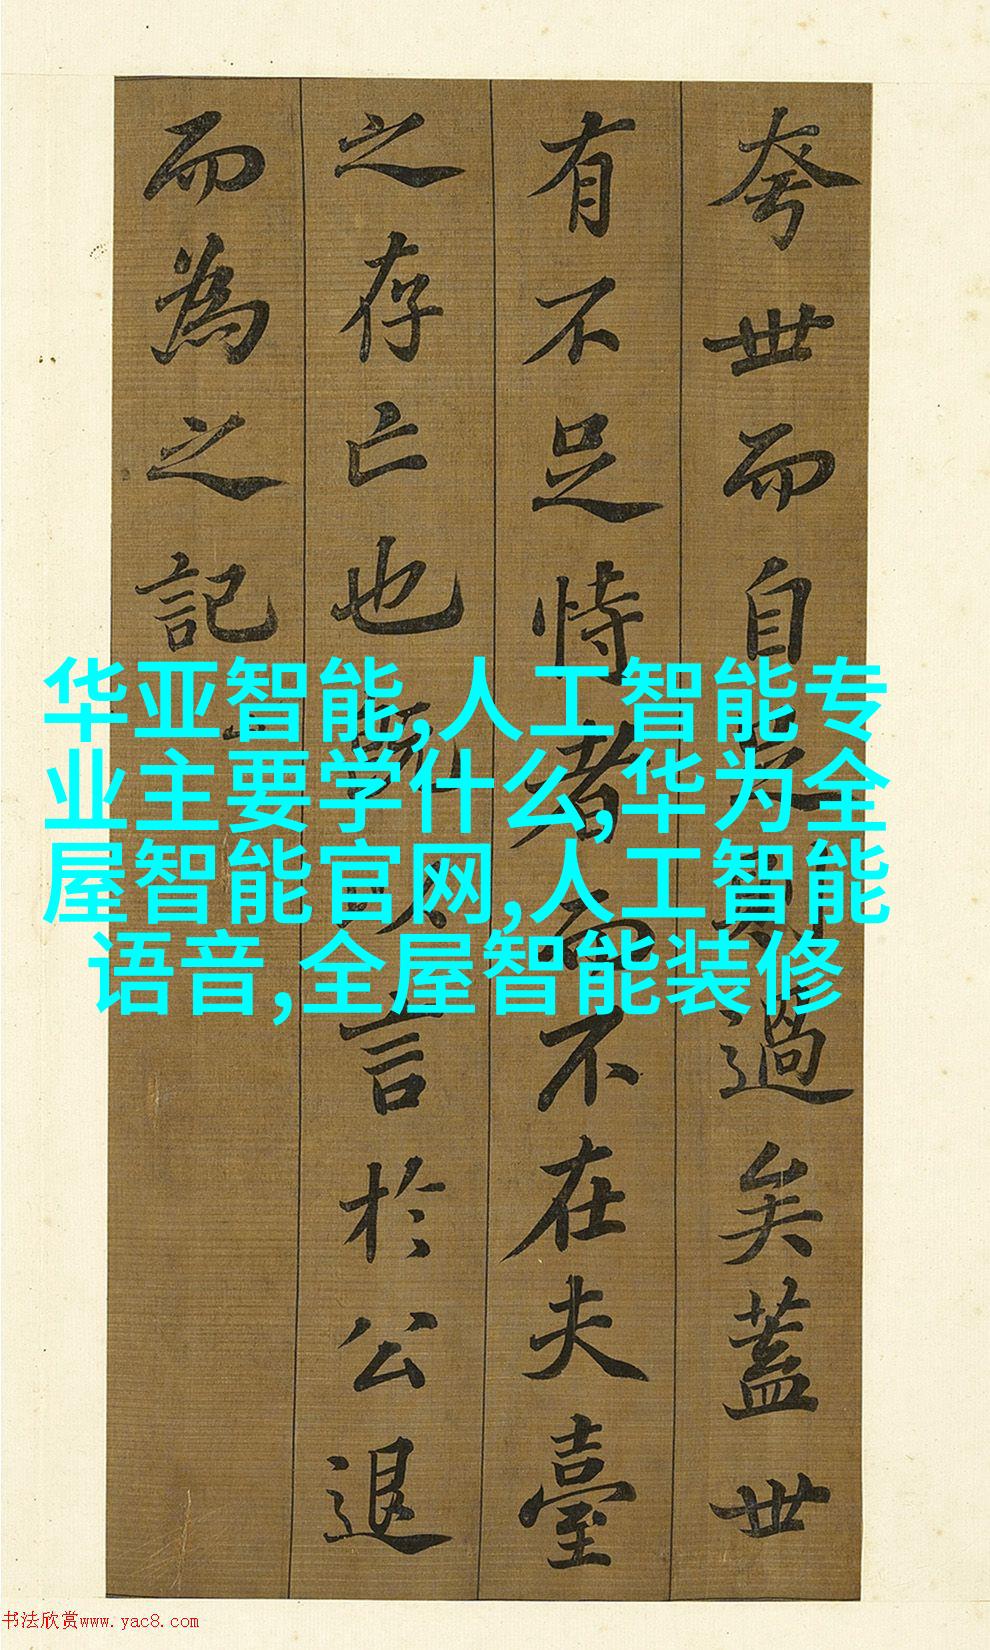 夸世而自足則過矣蓋世
有不足恃者而不在夫臺
之存亡也既以言於公退
而為之記
华亚智能,人工智能专
业主要学什么,华为全
屋智能官网,人工智能
语音,全屋智能装修
书法欣赏www.yac8.com